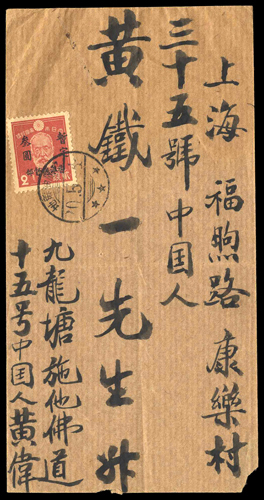 上海 福煦路 康樂村
三十五號中国人
黃鐵一先生升
九龍塘施他佛道
十五号中国人黃偉
2